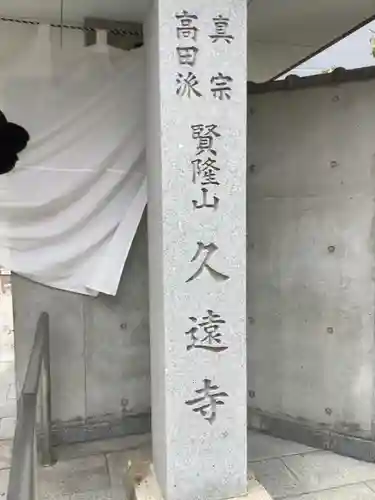 真宗
高田派
賢隆山 久遠寺